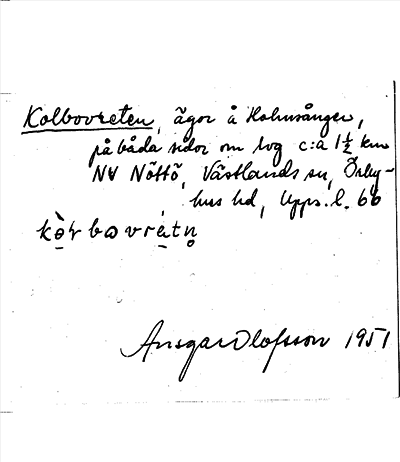 Kolbovreten, ägor å Holmsånger,
på båda sidor om väg c:a 1½ km
NV Nöttö, Västlands sn, Örby-
hus hd, Upps. l. 66
kòrbovrètn
Ansgar Olofsson 1951